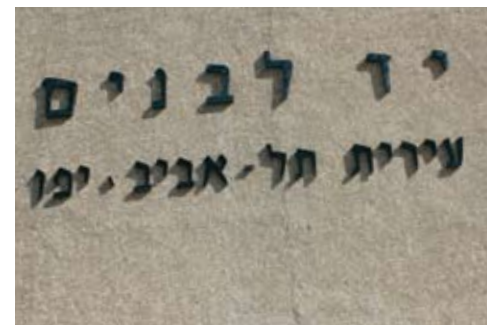 יד לבנים
עירית תל-אביב-יפו